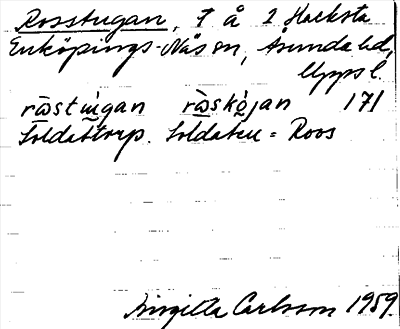 Rosstugan, 7 å 2 Hacksta
Enköpings-Näs sn, Åsunda hd,
Upps l.
rωstùgan rωskòjan 171
Soldattorp. Soldaten = Roos
Birgitta Carlsson 1959.